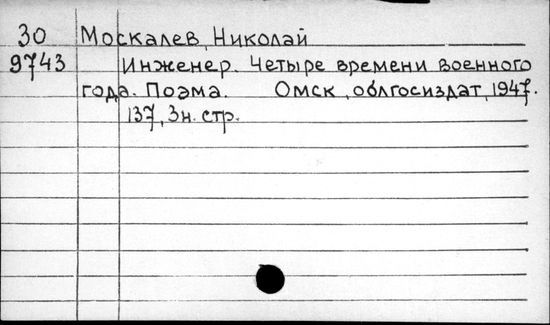 30 Москалев, Николай
9743 Инженер. Четыре времени военного
года. Поэма. Омск, облгосиздат, 1947.
137, 3н. стр.